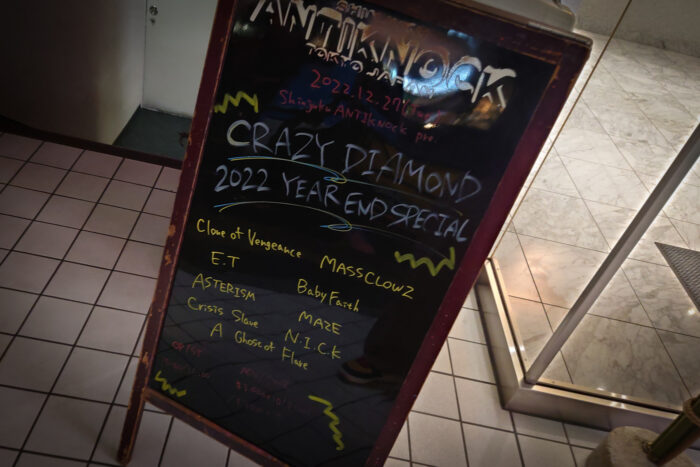 SHIN
ANTIKNOCK
TOKYO JAPAN
2022.12.27
Shinjuku ANTIKnock pre.
CRAZY DIAMOND
2022 YEAR END SPECIAL
Clone of Vengeance
MASSCLOWZ
E.T
Baby Faith
ASTERISM
MAZE
Crisis Slave
N.I.C.K
A Ghost of Flare